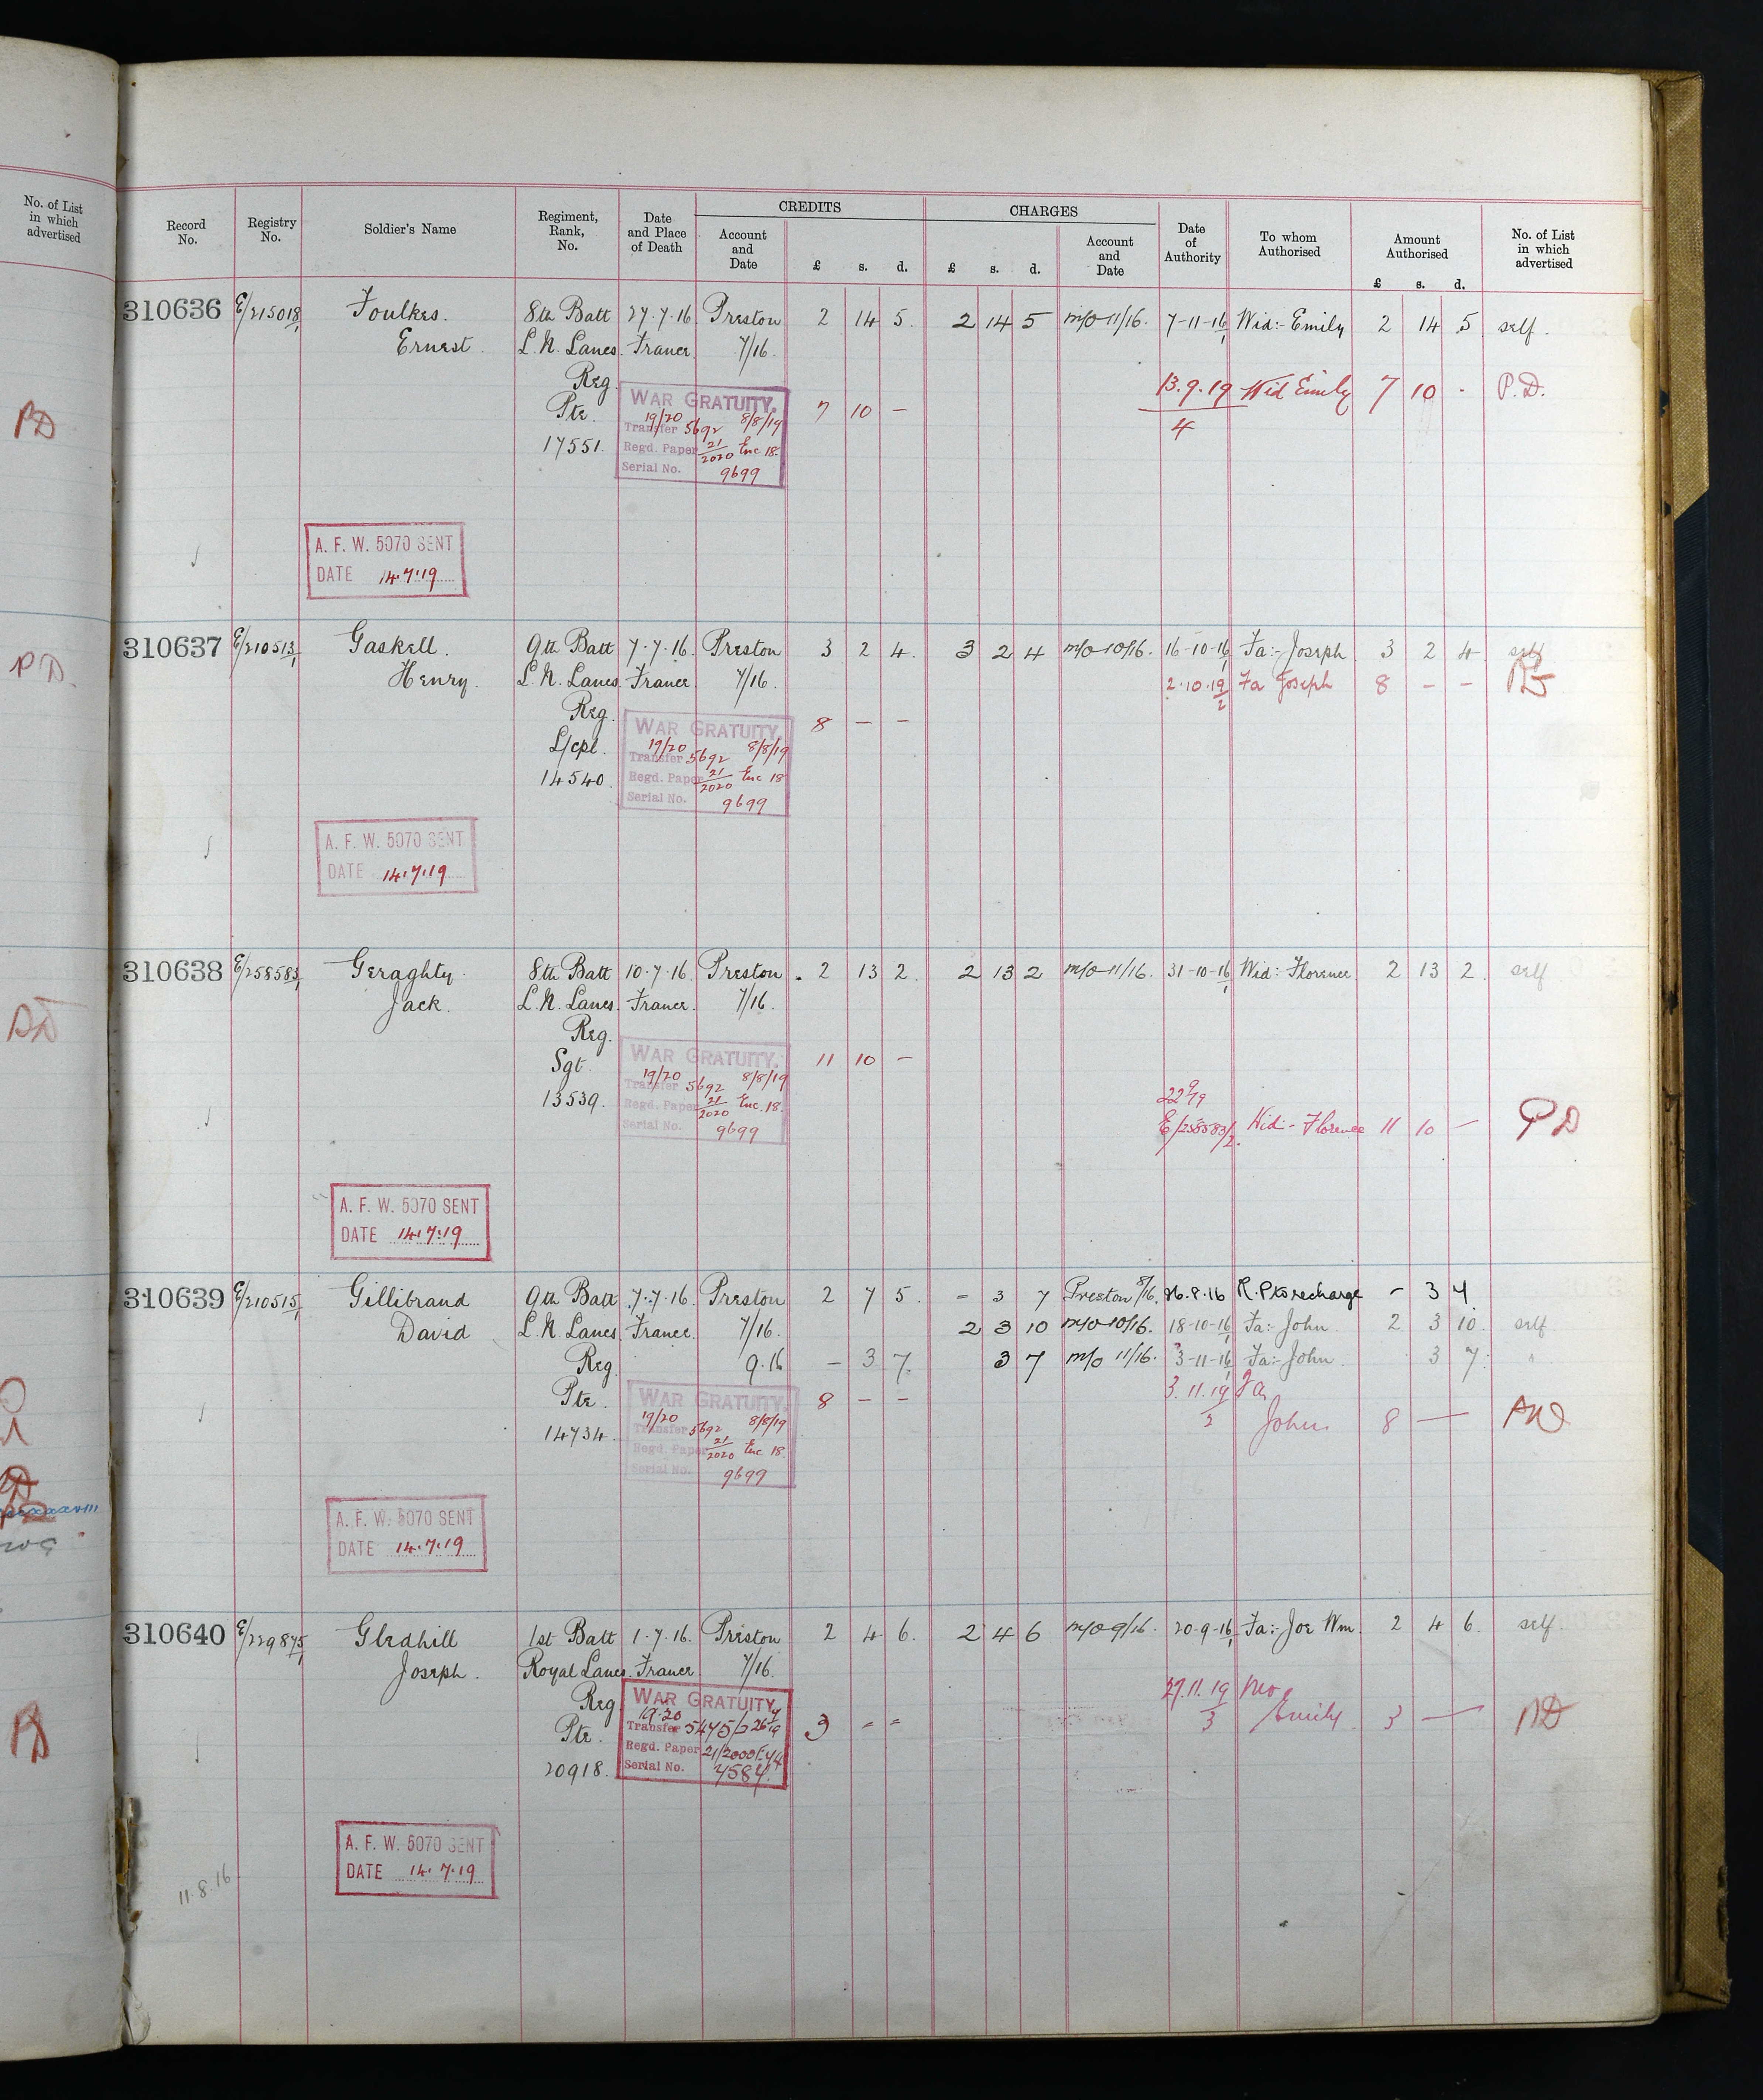 No. of List
in which
advertised
PD
PD.
Record
No.
Registry
No.
Soldier's Name
Regiment,
Rank,
No.
Date
and Place
of Death
CREDITS
Account
and
Date
£ s. d.
CHARGES
£ s. d.
Account
and
Date
Date
of
Authority
To whom
Authorised
Amount
Authorised
£ s. d.
No. of List
in which
advertised
310636 E/215018/1 Foulkes. 8th Batt 27.7.16 Preston 2 14 5. 2 14 5 m/o 11/16. 7-11-16/1 Wid:- Emily 2 14 5 self.
Ernest. L.N. Lancs. France 7/16.
Reg. 13.9.19 Wid Emily 7 10 - P.D.
Pte. 7 10 - 4
17551.
WAR GRATUITY.
19/20 8/8/19
Transfer 5692
Regd. Paper 21/2020 Enc 18.
Serial No. 9699
A. F. W. 5070 SENT
DATE 14.7.19
310637 E/210513/1 Gaskell. 9th Batt 7.7.16. Preston 3 2 4. 3 2 4 m/o 10/16. 16-10-16/1 Fa:- Joseph 3 2 4. self
Henry. L.N. Lancs. France 7/16. 2.10.19/2 Fa Joseph 8 - - PD
Reg. 8 - -
L/cpl.
14540.
WAR GRATUITY.
19/20 8/8/19
Transfer 5692
Regd. Paper 21/2020 Enc 18
Serial No. 9699
A. F. W. 5070 SENT
DATE 14.7.19
310638 E/258583/1 Geraghty. 8th Batt 10.7.16. Preston. 2 13 2. 2 13 2 m/o 11/16. 31-10-16/1 Wid: Florence 2 13 2. self
Jack. L.N. Lancs. France. 7/16.
Reg.
Sgt. 11 10 -
13539. 22 9/19
E/258583/2. Wid:- Florence 11 10 - PD
WAR GRATUITY.
19/20 8/8/19
Transfer 5692
Regd. Paper 21/2020 Enc. 18.
Serial No. 9699
A. F. W. 5070 SENT
DATE 14.7.19
310639 E/210515/1 Gillibrand 9th Batt 7.7.16. Preston 2 7 5. - 3 7 Preston 8/16. 26.8.16 R.P. to recharge - 3 4
David L.N. Lancs. France. 7/16. 2 3 10 m/o 10/16. 18-10-16/1 Fa:- John. 2 3 10. self
Reg. 9.16 - 3 7. 3 7 m/o 11/16. 3-11-16/1 Fa:- John. 3 7. "
Pte. 8 - - 3.11.19 Fa
14734. John. 8 -
WAR GRATUITY.
19/20 8/8/19
Transfer 5692
Regd. Paper 21/2020 Enc 18
Serial No. 9699
A. F. W. 5070 SENT
DATE 14.7.19
310640 E/229875/1 Gledhill 1st Batt 1.7.16. Preston 2 4 6. 2 4 6 m/o 9/16. 20-9-16/1 Fa:- Joe Wm. 2 4 6. self.
Joseph. Royal Lancs. France 7/16.
Reg 27.11.19/3 Mo
Pte. 3 - - Emily. 3 - PD
20918.
WAR GRATUITY.
19.20
Transfer 5475/2
Regd. Paper 21/2000
Serial No. 7584.
A. F. W. 5070 SENT
DATE 14.7.19
11.8.16